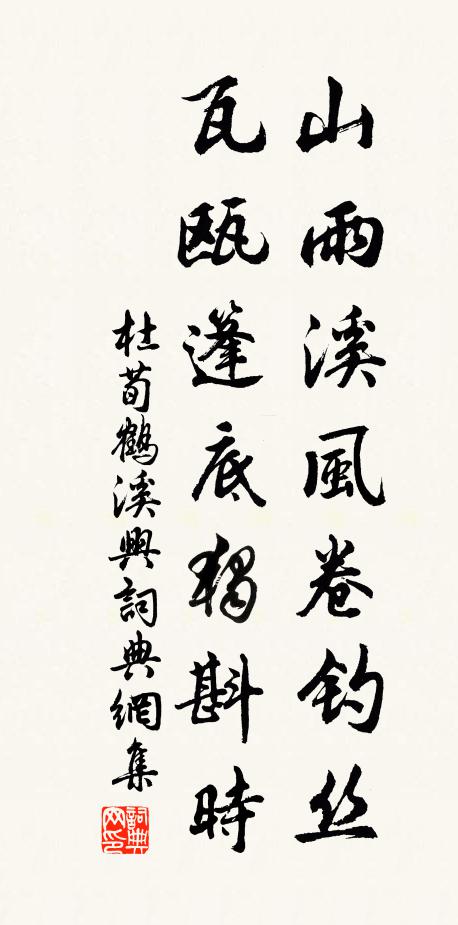 山雨溪風卷钓丝
瓦瓯蓬底獨斟時
杜荀鶴溪興詞典網集
詞典网印